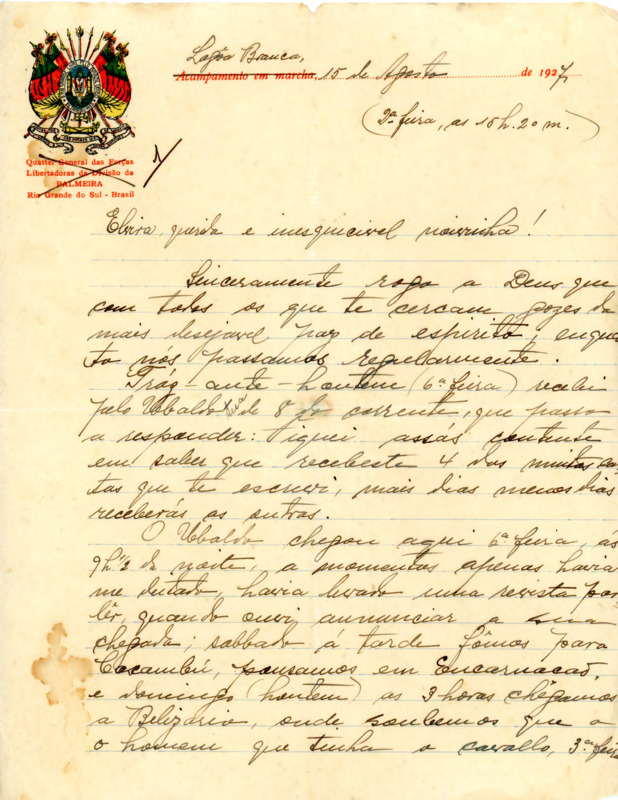 Lagôa Branca,
Acampamento em marcha, 15 de Agosto de 1927,
(2ª feira, as 15 h. 20 m.)
1
Quartel General das Forças
Libertadoras da Divisão da
PALMEIRA
Rio Grande do Sul - Brasil
Elvira, querida e inesquicivel noivinha!
Sinceramente rogo a Deus que
com todos os que te cercam gozes da
mais desejavel paz de espirito, enquan
to nós passamos regularmente.
Tráz-ante-hontem (6ª feira) recebi
pelo Ubaldo tua de 8 do corrente, que passo
a responder: fiquei assás contente
em saber que recebeste 4 das muitas car
tas que te escrevi, mais dias menos dias
receberás as outras.
O Ubaldo chegou aqui 6ª feira, as
9h ½ da noite, a momentos apenas havia
me deitado, havia levado uma revista para
lêr, quando ouvi annunciar a sua
chegada; sabbado á tarde fômos para
Cocambú, pousamos em Encarnacaõ,
e domingo (hontem) as 3 horas chêgamos
a Belizario, onde soubemos que o
o homem que tinha o cavallo, 3ª feira